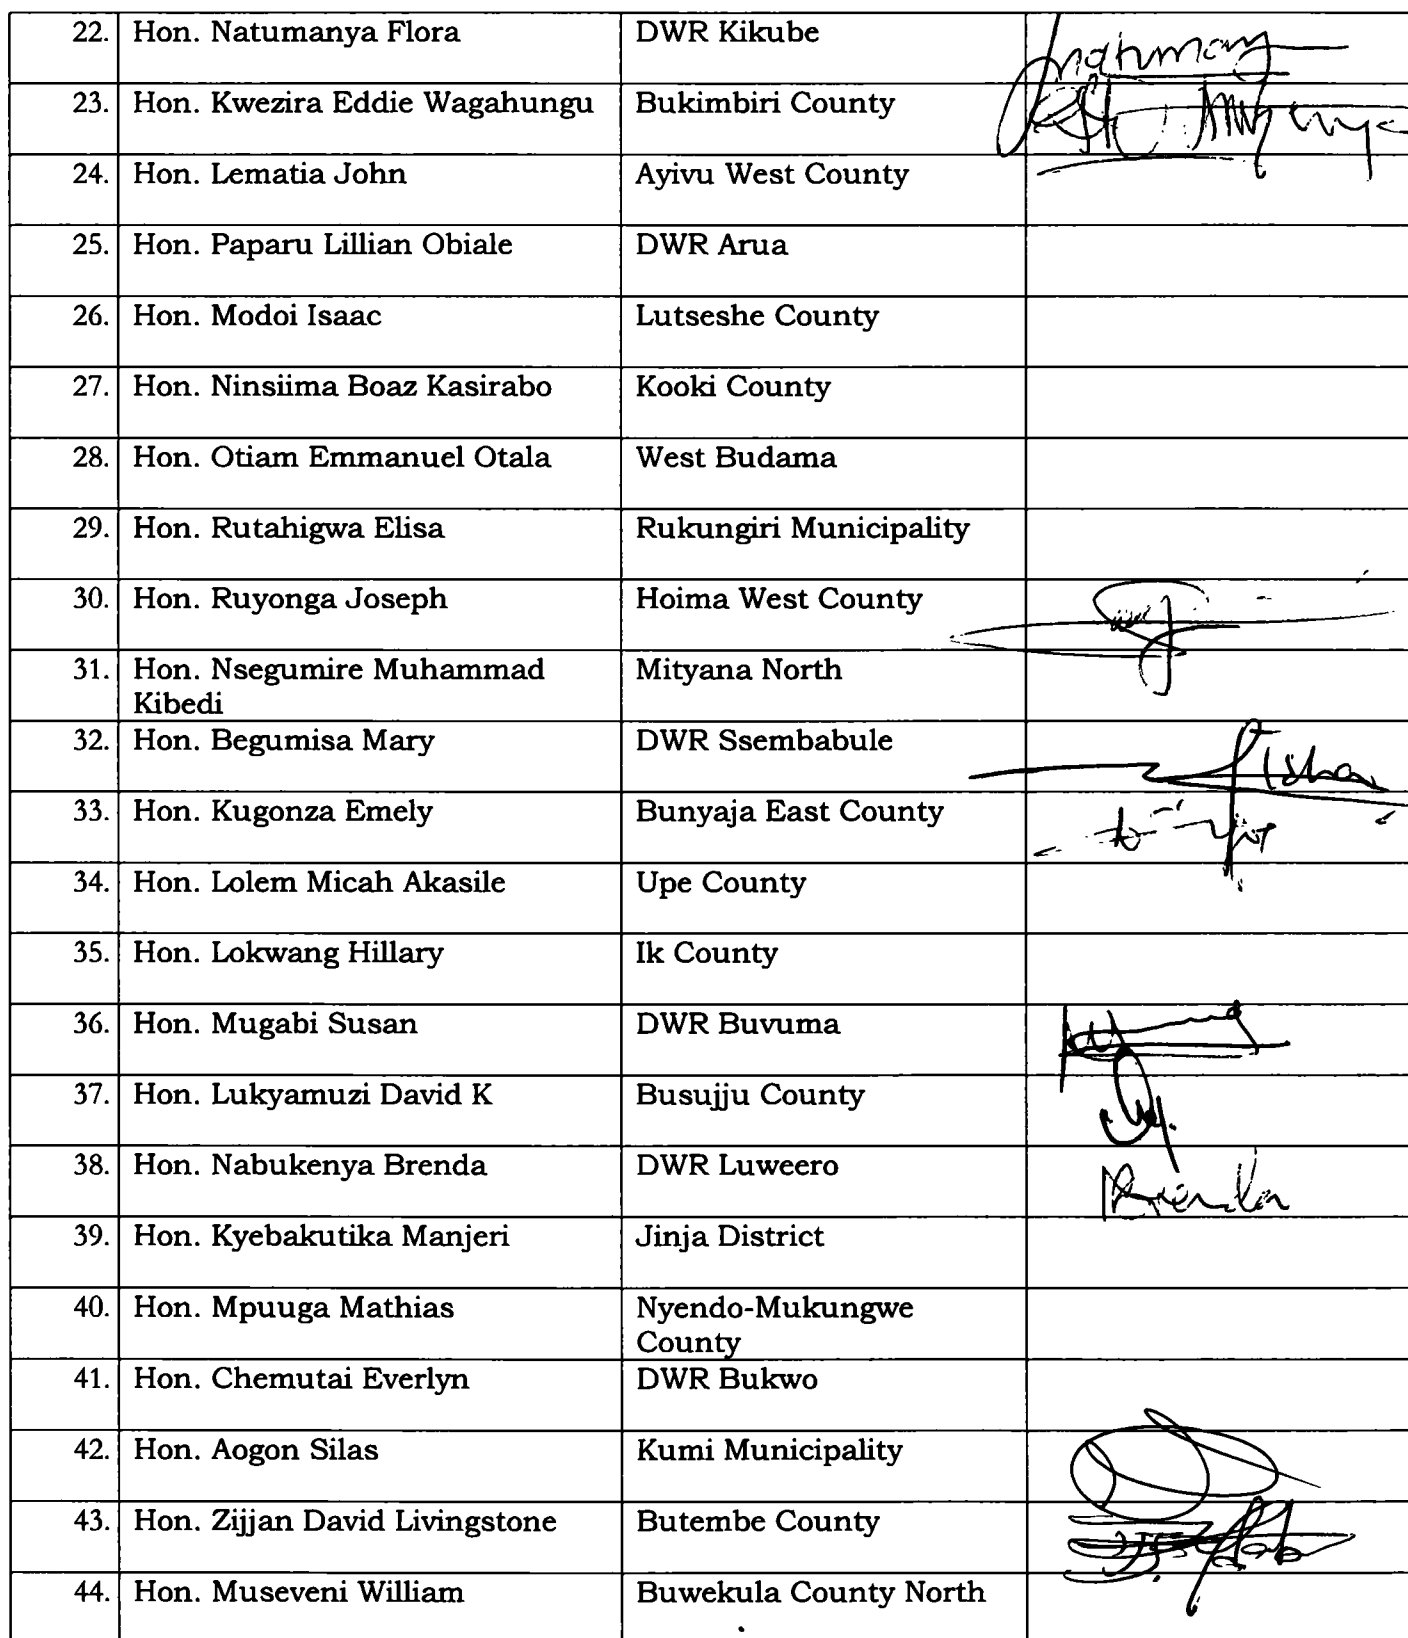 22. Hon. Natumanya Flora DWR Kikube
23. Hon. Kwezira Eddie Wagahungu Bukimbiri County
24. Hon. Lematia John Ayivu West County
25. Hon. Paparu Lillian Obiale DWR Arua
26. Hon. Modoi Isaac Lutseshe County
27. Hon. Ninsiima Boaz Kasirabo Kooki County
28. Hon. Otiam Emmanuel Otala West Budama
29. Hon. Rutahigwa Elisa Rukungiri Municipality
30. Hon. Ruyonga Joseph Hoima West County
31. Hon. Nsegumire Muhammad Mityana North
Kibedi
32. Hon. Begumisa Mary DWR Ssembabule
33. Hon. Kugonza Emely Bunyaja East County
34. Hon. Lolem Micah Akasile Upe County
35. Hon. Lokwang Hillary Ik County
36. Hon. Mugabi Susan DWR Buvuma
37. Hon. Lukyamuzi David K Busujju County
38. Hon. Nabukenya Brenda DWR Luweero Brenda
39. Hon. Kyebakutika Manjeri Jinja District
40. Hon. Mpuuga Mathias Nyendo-Mukungwe
County
41. Hon. Chemutai Everlyn DWR Bukwo
42. Hon. Aogon Silas Kumi Municipality
43. Hon. Zijjan David Livingstone Butembe County
44. Hon. Museveni William Buwekula County North